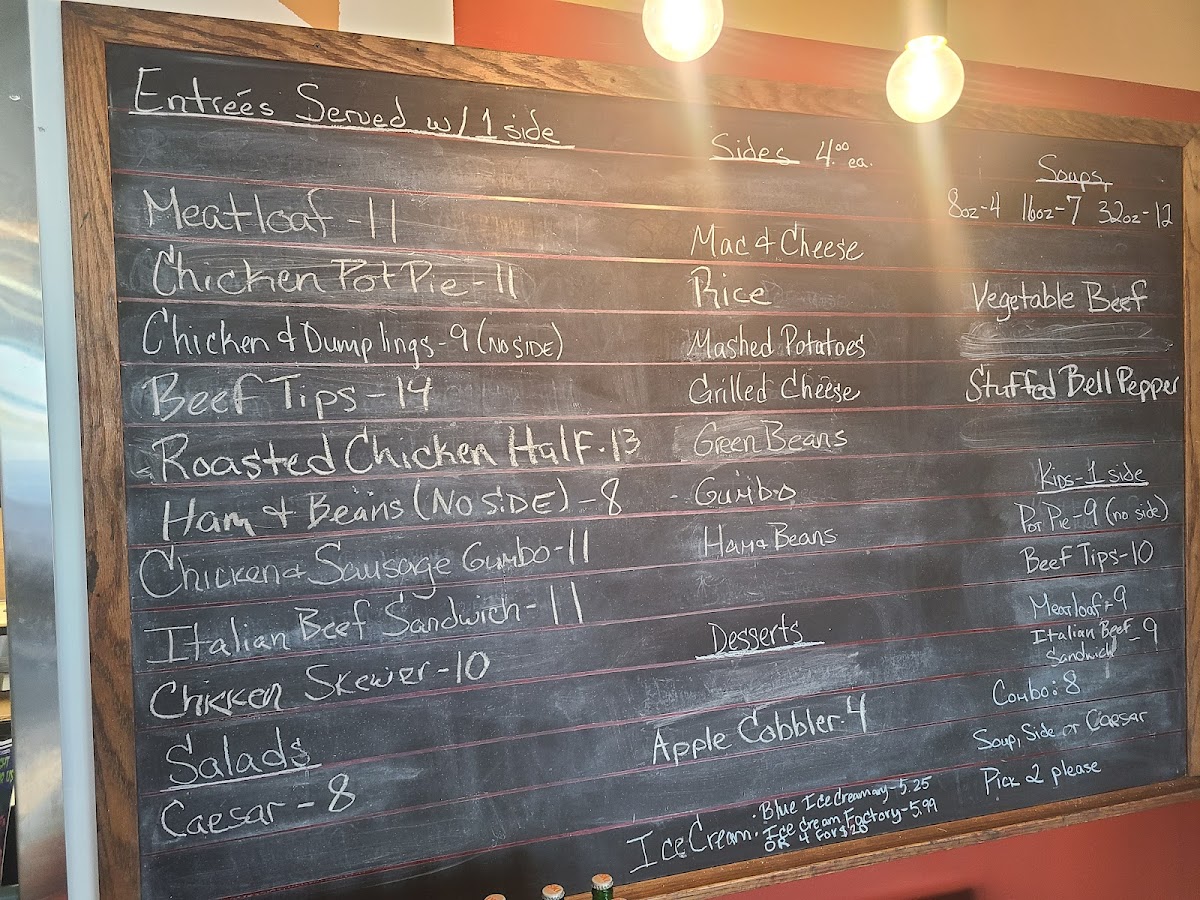 Entrées Served w/ 1 side
Meatloaf - 11
Chicken Pot Pie - 11
Chicken & Dumplings - 9 (NO SIDE)
Beef Tips - 14
Roasted Chicken Half - 13
Ham & Beans (NO SIDE) - 8
Chicken & Sausage Gumbo - 11
Italian Beef Sandwich - 11
Chicken Skewer - 10
Salads
Caesar - 8
Sides 4.00 ea.
Mac & Cheese
Rice
Mashed Potatoes
Grilled Cheese
Green Beans
- Gumbo
Ham & Beans
Desserts
Apple Cobbler - 4
Ice Cream
· Blue Ice Creamary - 5.25
· Ice Cream Factory - 5.99
OR 4 For $20
Soups
8oz - 4 16oz - 7 32oz - 12
Vegetable Beef
Stuffed Bell Pepper
Kids - 1 side
Pot Pie - 9 (no side)
Beef Tips - 10
Meatloaf - 9
Italian Beef
Sandwich - 9
Combo: 8
Soup, Side or Caesar
Pick 2 please